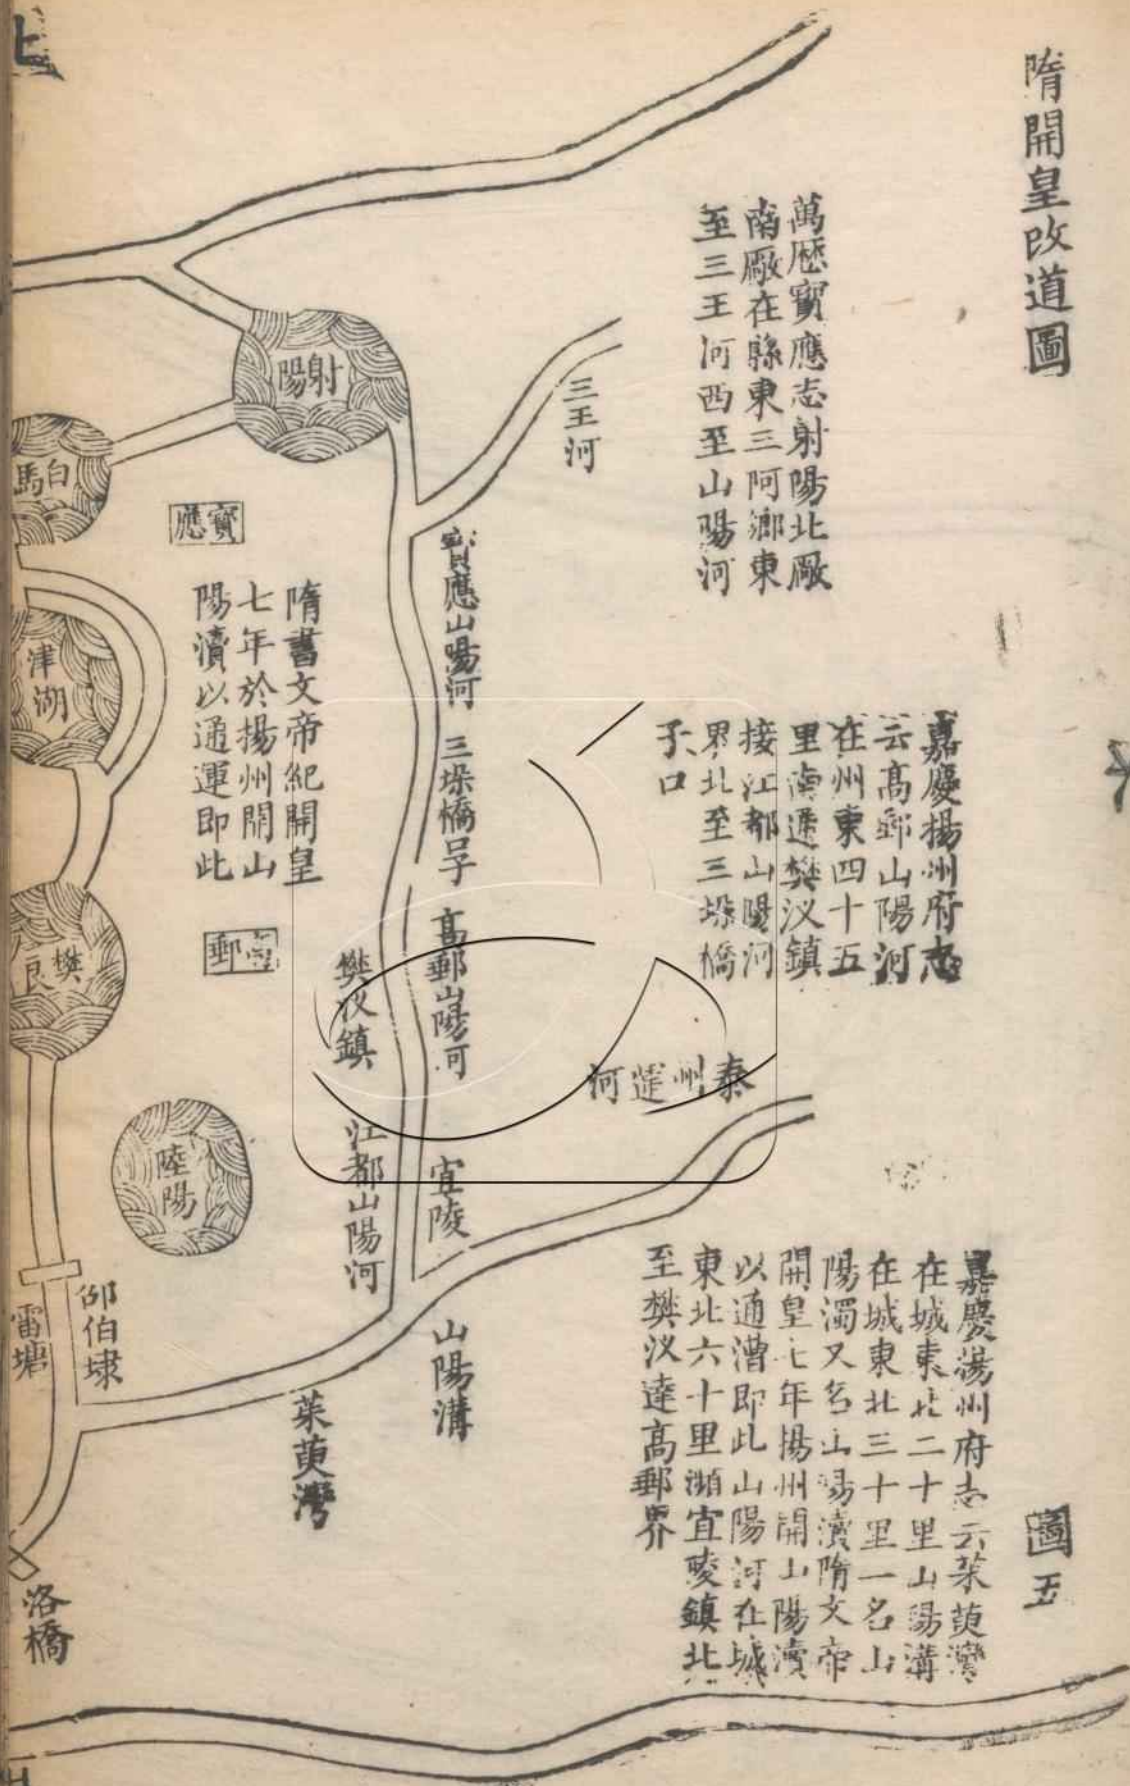 隋開皇改道圖
圖五
萬歷寶應志射陽北厫
南厫在縣東三阿鄉東
至三王河西至山陽河
嘉慶揚州府志
云高郵山陽河
在州東四十五
里南遞樊汊鎮
接江都山陽河
界北至三垛橋
子口
嘉慶揚州府志云茱萸灣
在城東北二十里山陽溝
在城東北三十里一名山
陽濁又名山陽瀆隋文帝
開皇七年揚州開山陽瀆
以通漕即此山陽河在城
東北六十里瀕宜陵鎮北
至樊汊達高郵界
三王河
射陽
白馬
寶應
寶應山陽河
隋書文帝紀開皇
七年於揚州開山
陽瀆以通運即此
津湖
三垛橋
高郵
高郵山陽河
樊良
樊汊鎮
泰州運河
陸陽
江都山陽河
宜陵
山陽溝
邵伯埭
雷塘
茱萸灣
洛橋
北